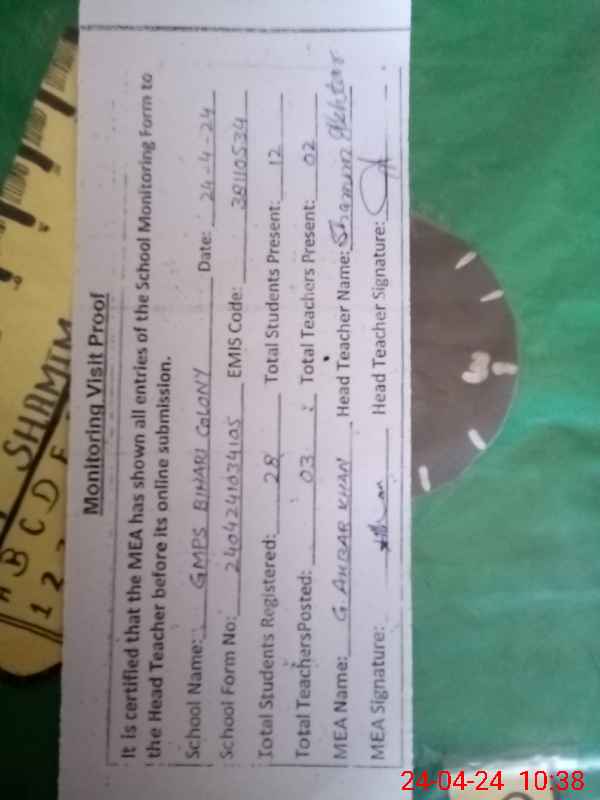 Monitoring Visit Proof
It is certified that the MEA has shown all entries of the School Monitoring Form to
the Head Teacher before its online submission.
School Name: GMPS BIHARI COLONY Date: 24-4-24
School Form No: 2404241034105 EMIS Code: 38110534
Total Students Registered: 28 Total Students Present: 12
Total TeachersPosted: 03 Total Teachers Present: 02
MEA Name: G. AKBAR KHAN Head Teacher Name: Shamim Akhtar
MEA Signature: Head Teacher Signature:
SHAMIM
A B C D E
1 2
24-04-24 10:38